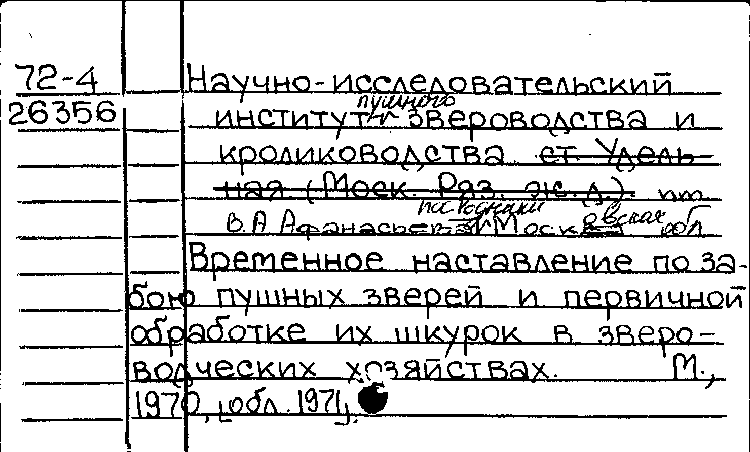 72-4 Научно-исследовательский
26356 институт пушного звероводства и
кролиководства ст. Удель-
ная (Моск. Ряз. ж.д.) им.
В.А Афанасьева пос. Родники Московская обл.
Временное наставление по за-
бою пушных зверей и первичной
обработке их шкурок в зверо-
водческих хозяйствах. М.,
1970, [обл. 1971].